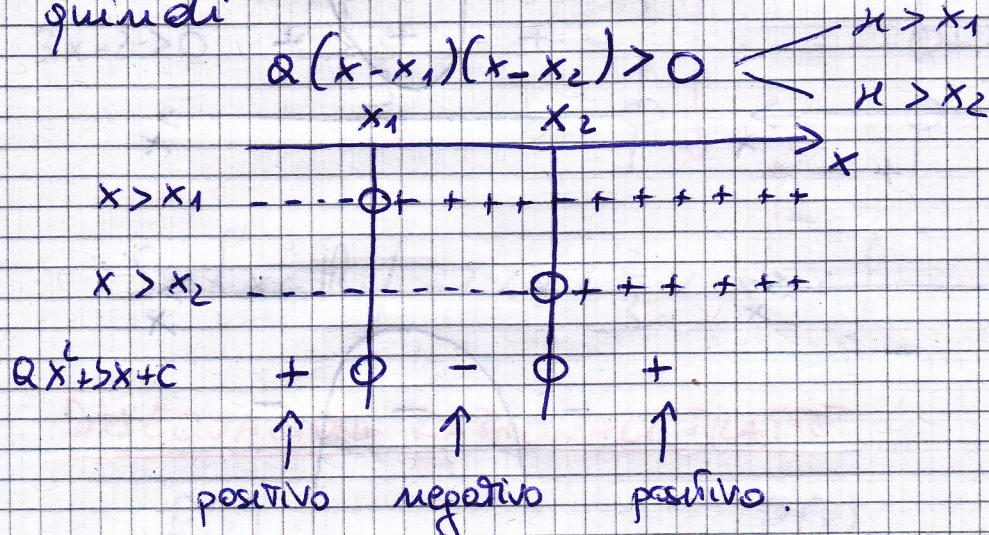 quindi
a(x-x₁)(x-x₂)>0
x>x₁
x>x₂
x₁ x₂
x
x>x₁ - - - - + + + + - + + + + + +
x>x₂ - - - - - - - - - + + + + + +
ax²+bx+c + - +
positivo negativo positivo.